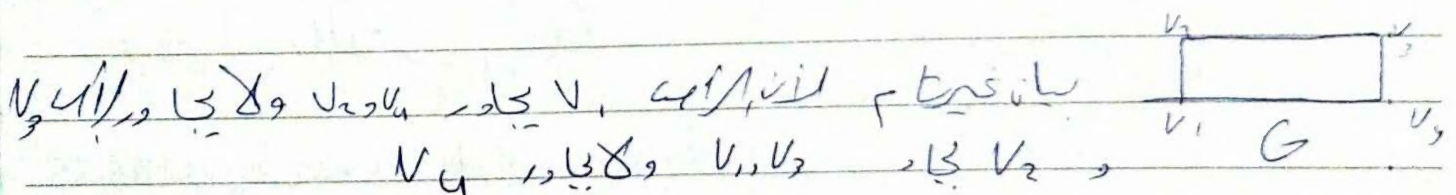 V₂ V₃
بيان غير تام لأن الرأس V₁ يجاور V₂ و V₄ ولا يجاور الرأس V₃
V₁ G V₄
و V₂ يجاور V₁, V₃ ولا يجاور V₄